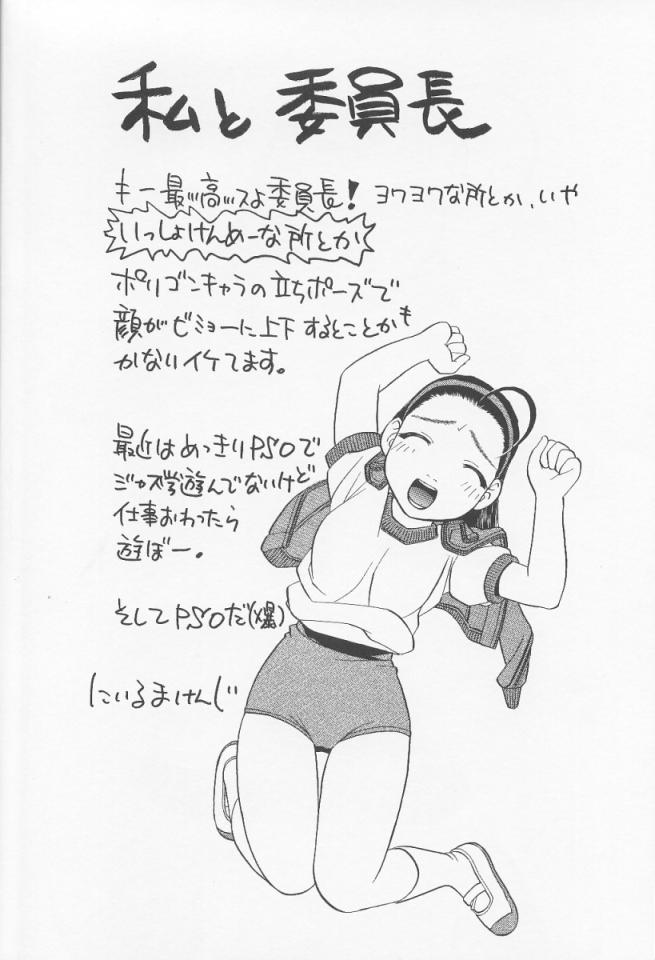 私と委員長
キー最ッ高ッスよ委員長！ ヨワヨワな所とか、いや
いっしょけんめーな所とか
ポリゴンキャラの立ちポーズで
顔がビミョーに上下するとことかも
かないイケてます。
最近はめっきりPSOで
ジャス学遊んでないけど
仕事おわったら
遊ぼー。
そしてPSOだ(爆)
にいるまけんじ